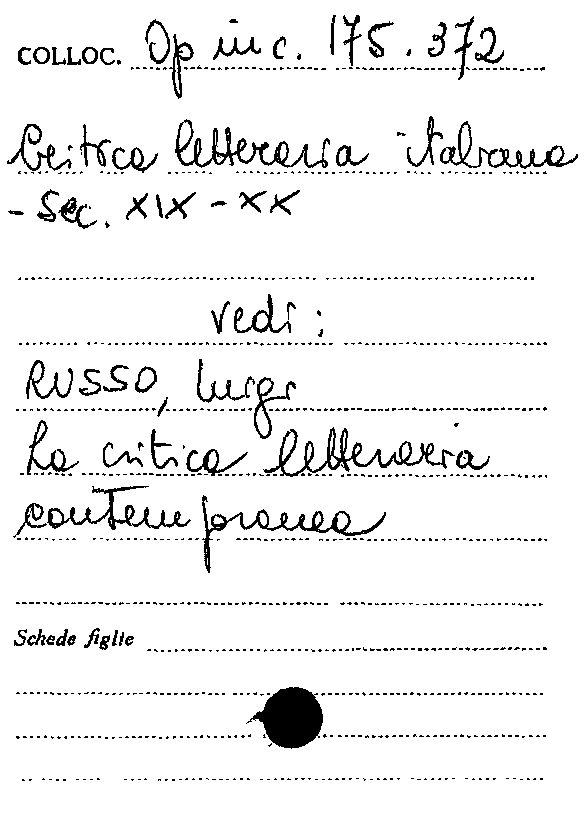 COLLOC. Op inc. 175.372
Critica letteraria italiana
- Sec. XIX - XX
vedi:
RUSSO, Luigi
La critica letteraria
contemporanea
Schede figlie